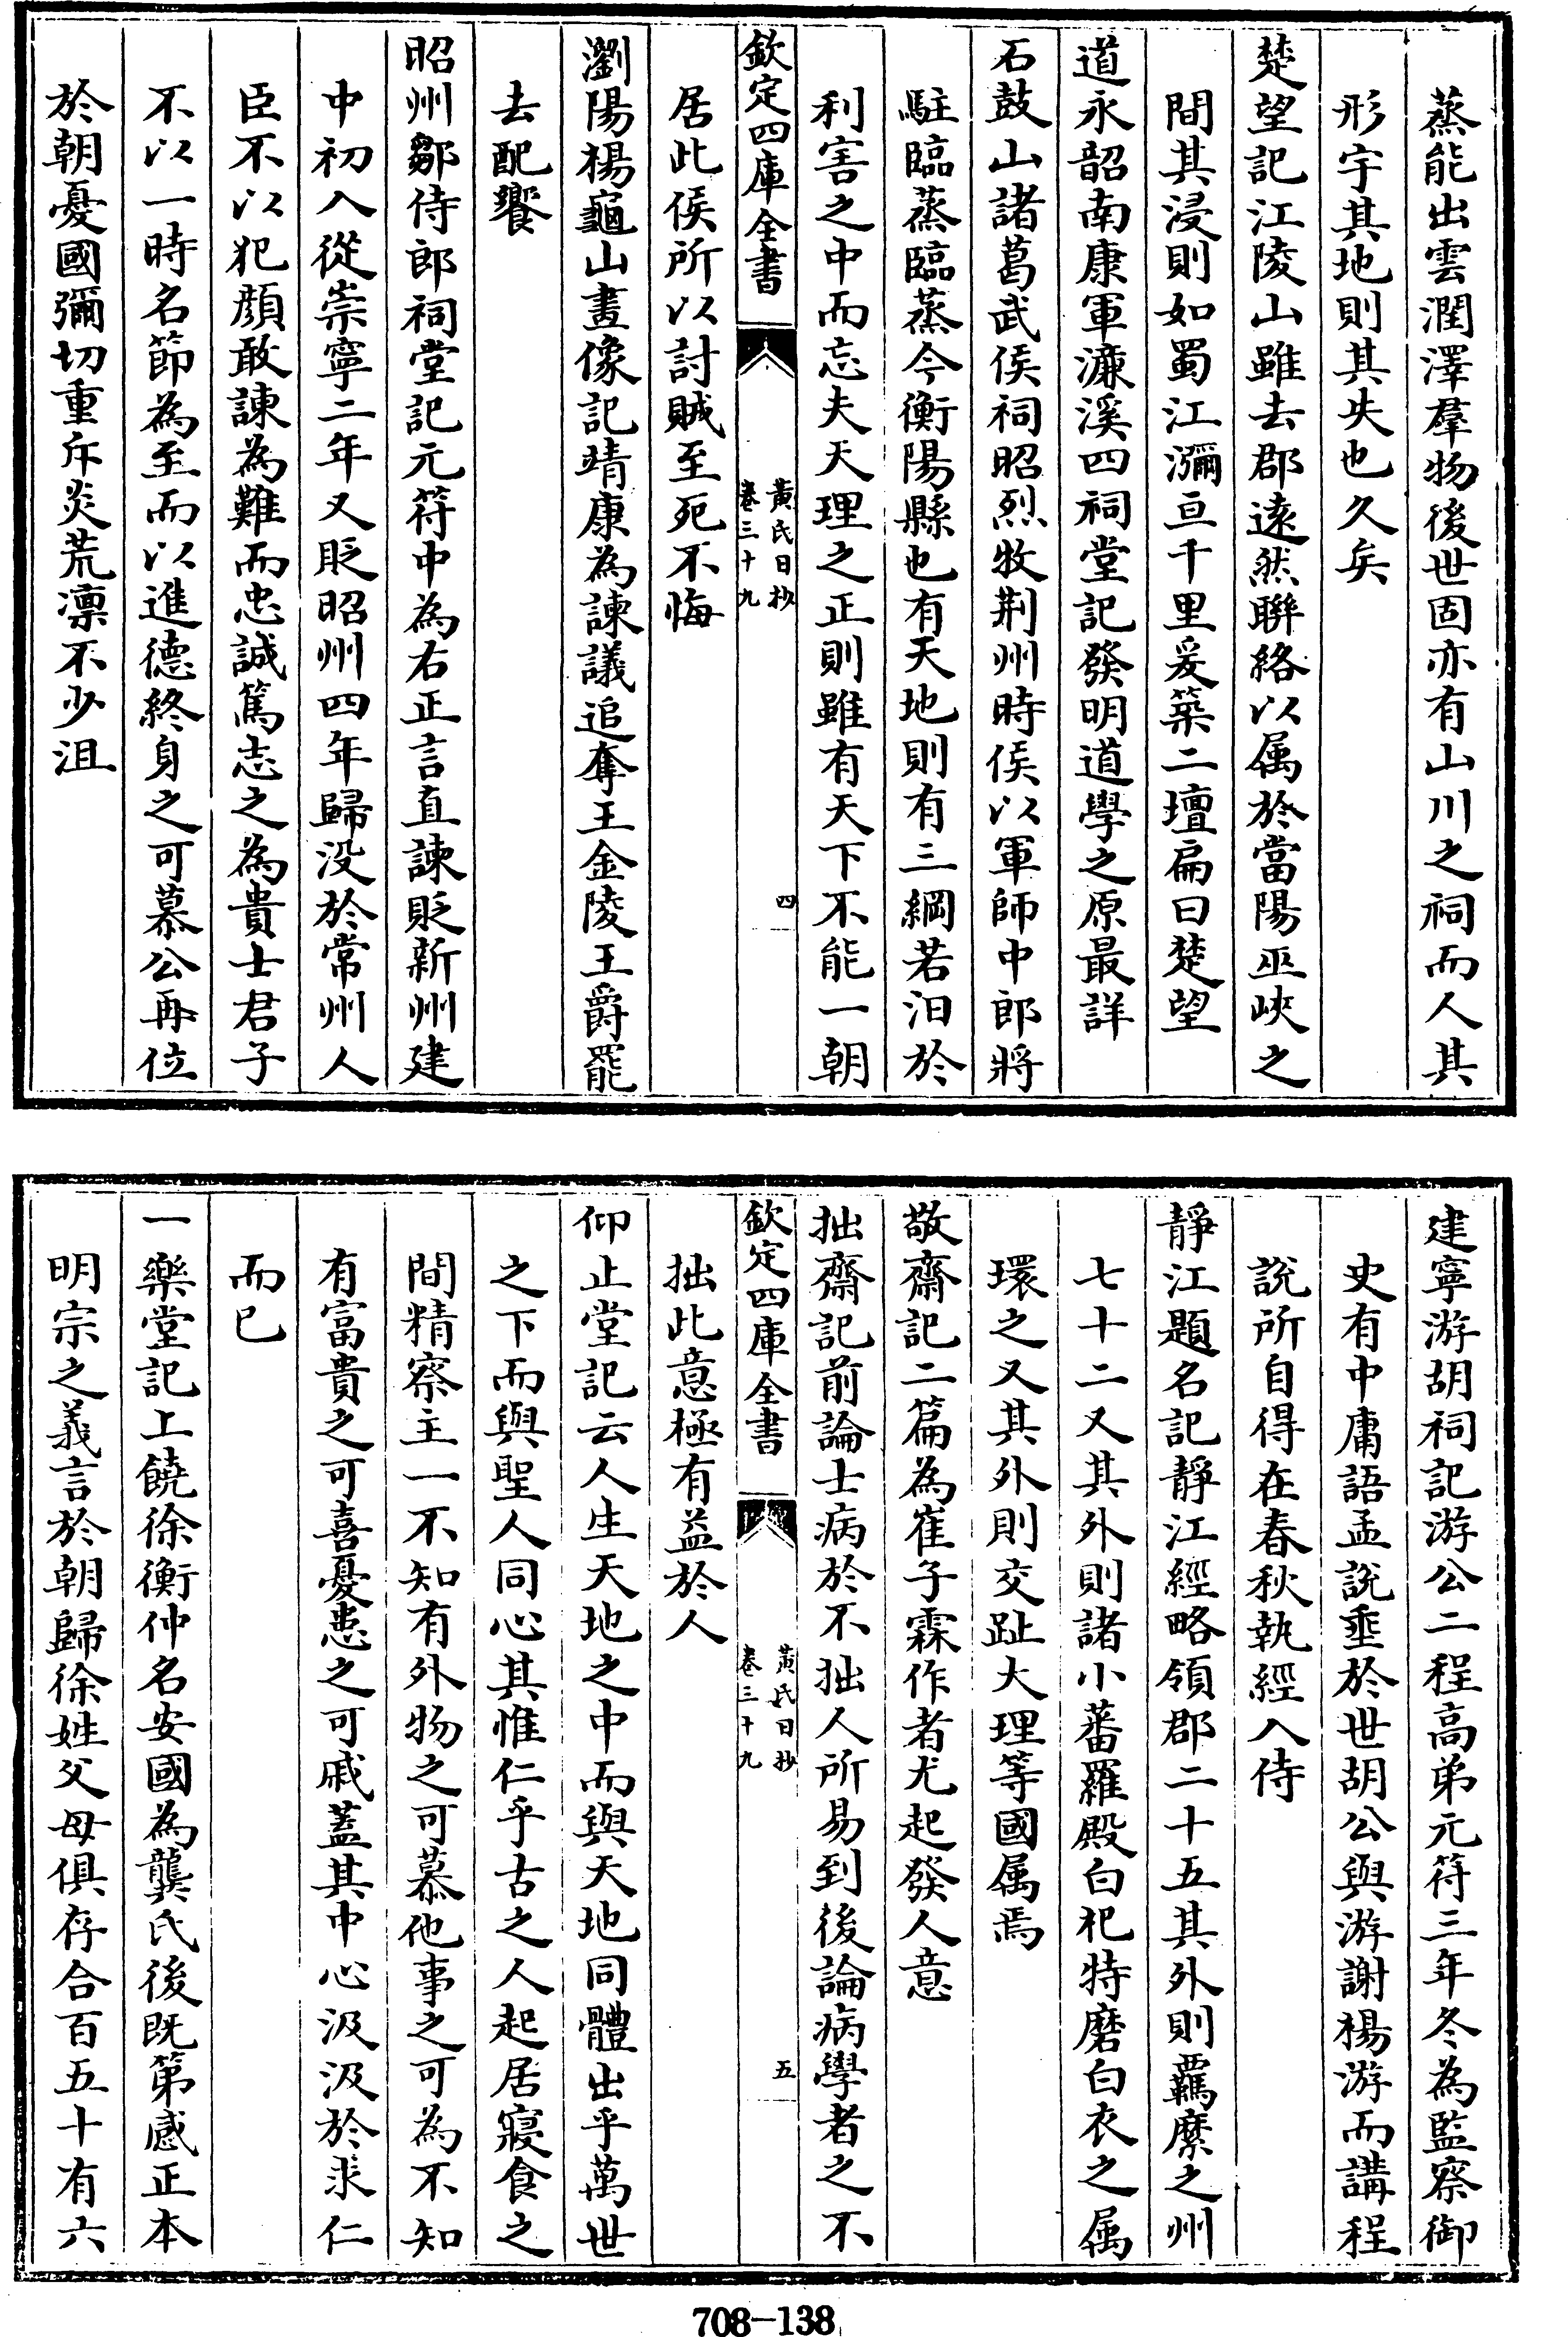 蒸能出雲潤澤羣物後世固亦有山川之祠而人其
形宇其地則其失也久矣
楚望記江陵山雖去郡遠然聯絡以属於當陽巫峽之
間其浸則如蜀江瀰亘千里爰築二壇扁曰楚望
道永韶南康軍濂溪四祠堂記發明道學之原最詳
石鼓山諸葛武侯祠昭烈牧荆州時侯以軍師中郎將
駐臨蒸臨蒸今衡陽縣也有天地則有三綱若汨於
利害之中而忘夫天理之正則雖有天下不能一朝
欽定四庫全書
黄氏日抄
卷三十九
四
居此侯所以討賊至死不悔
瀏陽楊龜山畫像記靖康為諫議追奪王金陵王爵罷
去配饗
昭州鄒侍郎祠堂記元符中為右正言直諫貶新州建
中初入從崇寧二年又貶昭州四年歸没於常州人
臣不以犯顔敢諫為難而忠誠篤志之為貴士君子
不以一時名節為至而以進德終身之可慕公再位
於朝憂國彌切重斥炎荒凛不少沮
建寧游胡祠記游公二程高弟元符三年冬為監察御
史有中庸語孟説垂於世胡公與游謝楊游而講程
說所自得在春秋執經入侍
靜江題名記靜江經略領郡二十五其外則羈縻之州
七十二又其外則諸小蕃羅殿白祀特磨白衣之属
環之又其外則交趾大理等國属焉
敬齋記二篇為崔子霖作者尤起發人意
拙齋記前論士病於不拙人所易到後論病學者之不
欽定四庫全書
黄氏日抄
卷三十九
五
拙此意極有益於人
仰止堂記云人生天地之中而與天地同體出乎萬世
之下而與聖人同心其惟仁乎古之人起居寢食之
間精察主一不知有外物之可慕他事之可為不知
有富貴之可喜憂患之可戚蓋其中心汲汲於求仁
而已
一樂堂記上饒徐衡仲名安國為龔氏後既第感正本
明宗之義言於朝歸徐姓父母俱存合百五十有六
708-138